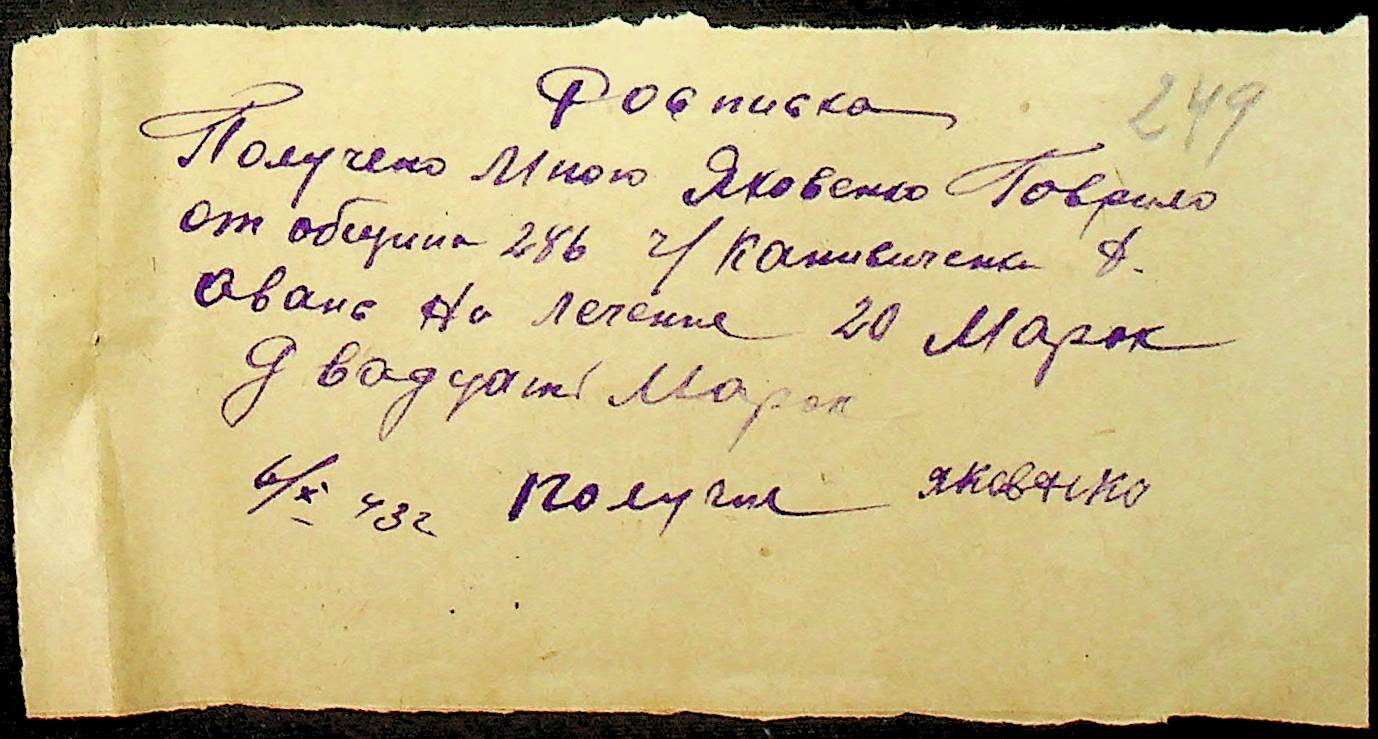 Росписка
249
Получено Мною Яковенко Говрило
от община 286 ч/
Аванс На лечение 20 Марок
Двадцать Марок
6/X 43г Получил Яковенко